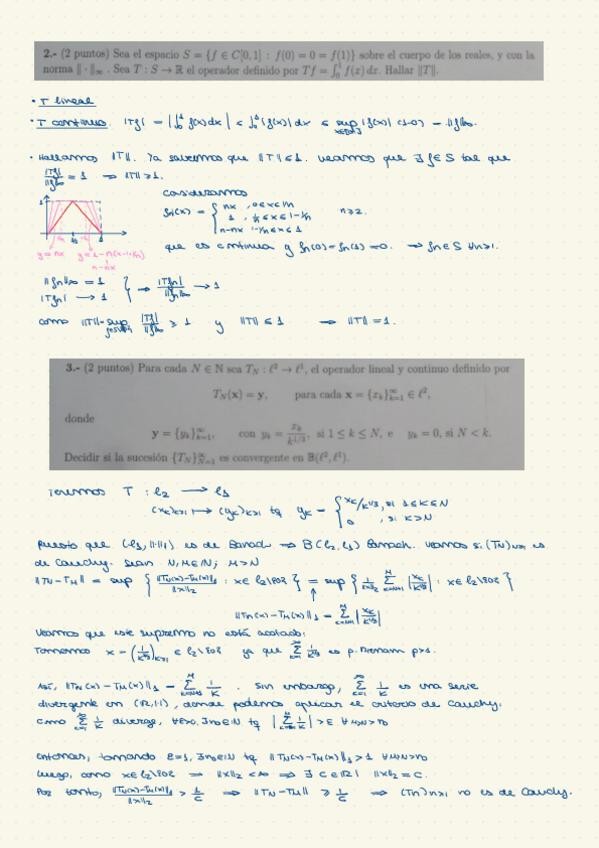 2.- (2 puntos) Sea el espacio S = {f ∈ C[0,1] : f(0) = 0 = f(1)} sobre el cuerpo de los reales, y con la
norma ‖·‖∞. Sea T : S → ℝ el operador definido por Tf = ∫₀¹ f(x) dx. Hallar ‖T‖.
· T lineal
· T continuo. |Tf| = |∫₀¹ f(x)dx| ≤ ∫₀¹ |f(x)| dx ≤ sup_{x∈[0,1]} |f(x)| (1-0) = ‖f‖∞.
· Hallamos ‖T‖. Ya sabemos que ‖T‖ ≤ 1. Veamos que ∃ f∈S tal que
|Tf|/‖f‖∞ = 1 ⇒ ‖T‖ ≥ 1.
Consideramos
fn(x) = { nx , 0≤x≤1/n
1 , 1/n≤x≤1-1/n n≥2.
n-nx 1-1/n≤x≤1
y=nx y=1-n(x-1+1/n)
n-nx
que es continua y fn(0)=fn(1)=0. ⇒ fn∈S ∀n≥1.
‖fn‖∞ = 1
|Tfn| → 1 } ⇒ |Tfn|/‖fn‖∞ → 1
Como ‖T‖ = sup |Tf|/‖f‖∞ ≥ 1 y ‖T‖ ≤ 1 ⇒ ‖T‖ = 1.
3.- (2 puntos) Para cada N ∈ ℕ sea T_N : ℓ² → ℓ¹, el operador lineal y continuo definido por
T_N(x) = y, para cada x = {x_k}_{k=1}^∞ ∈ ℓ²,
donde
y = {y_k}_{k=1}^∞, con y_k = x_k/k^{1/3}, si 1 ≤ k ≤ N, e y_k = 0, si N < k.
Decidir si la sucesión {T_N}_{N=1}^∞ es convergente en 𝔹(ℓ², ℓ¹).
Tenemos T : l₂ → l₁
(x_k)_{k≥1} ↦ (y_k)_{k≥1} tq y_k = { x_k/k^{1/3}, si 1≤k≤N
0 , si k>N
Puesto que (l₁, ‖·‖₁) es de Banach ⇒ B(l₂, l₁) Banach. Veamos si (T_N)_{N≥1} es
de Cauchy. Sean N, M∈ℕ; M>N
‖T_N-T_M‖ = sup { ‖T_N(x)-T_M(x)‖₁/‖x‖₂ : x∈l₂\{0} } = sup { 1/‖x‖₂ Σ_{k=N+1}^M |x_k/k^{1/3}| : x∈l₂\{0} }
‖T_N(x)-T_M(x)‖₁ = Σ_{k=N+1}^M |x_k/k^{1/3}|
Veamos que este supremo no está acotado:
Tomemos x = (1/k^{2/3})_{k≥1} ∈ l₂\{0} ya que Σ_{k=1}^∞ 1/k^{4/3} es p. Riemann p>1.
Así, ‖T_N(x)-T_M(x)‖₁ = Σ_{k=N+1}^M 1/k. Sin embargo, Σ_{k=1}^∞ 1/k es una serie
divergente en (ℝ, |·|), donde podemos aplicar el criterio de Cauchy.
Como Σ_{k=1}^∞ 1/k diverge, ∀ε>0, ∃n₀∈ℕ tq |Σ 1/k| > ε ∀ M,N>n₀
Entonces, tomando ε=1, ∃n₀∈ℕ tq ‖T_N(x)-T_M(x)‖₁ > 1 ∀M,N>n₀
Luego, como x∈l₂\{0} ⇒ ‖x‖₂ < ∞ ⇒ ∃ C∈ℝ | ‖x‖₂ = C.
Por tanto, ‖T_N(x)-T_M(x)‖₁/‖x‖₂ > 1/C ⇒ ‖T_N-T_M‖ ≥ 1/C ⇒ (Tn)n≥1 no es de Cauchy.